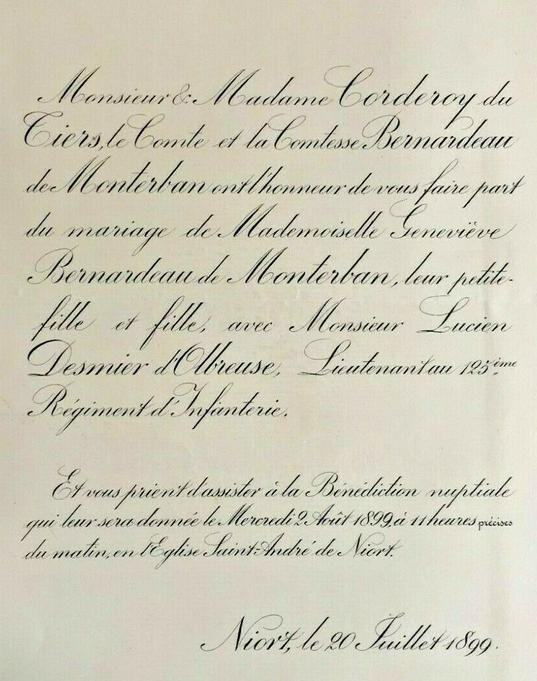 Monsieur & Madame Corderoy du
Tiers, le Comte et la Comtesse Bernardeau
de Monterban ont l'honneur de vous faire part
du mariage de Mademoiselle Geneviève
Bernardeau de Monterban, leur petite-
fille et fille, avec Monsieur Lucien
Desmier d'Olbreuse, Lieutenant au 125ème
Régiment d'Infanterie.
Et vous prient d'assister à la Bénédiction nuptiale
qui leur sera donnée le Mercredi 2 Août 1899, à 11 heures précises
du matin, en l'Eglise Saint-André de Niort.
Niort, le 20 Juillet 1899.